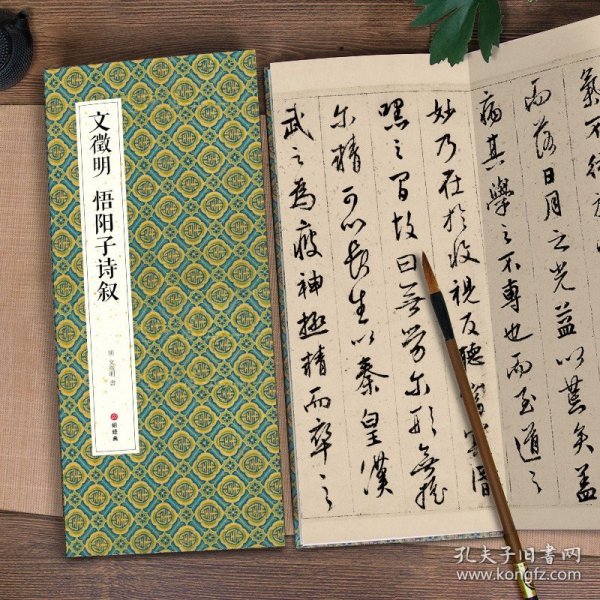 文徵明 悟阳子诗叙
明 文徵明 书
氣不行
而落日月之光益以荒矣盖
病其學之不專也而至道之
妙乃在於收視反聽
默之間故曰無勞尔形無搖
尔精可以長生以秦皇漢
武之為疲神極精而卒之
孔夫子旧书网
www.kongfz.com